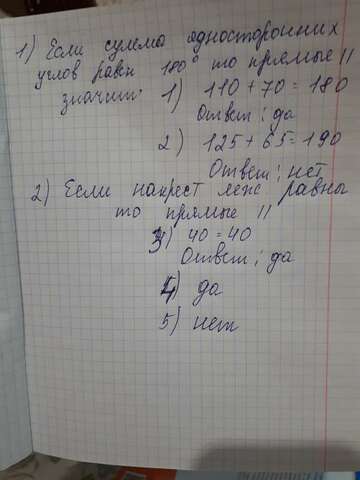 1) Если сумма односторонних
углов равн 180° то прямые ||
значит 1) 110 + 70 = 180
Ответ: да
2) 125 + 65 = 190
Ответ: нет
2) Если накрест леж равны
то прямые ||
3) 40 = 40
Ответ: да
4) да
5) нет